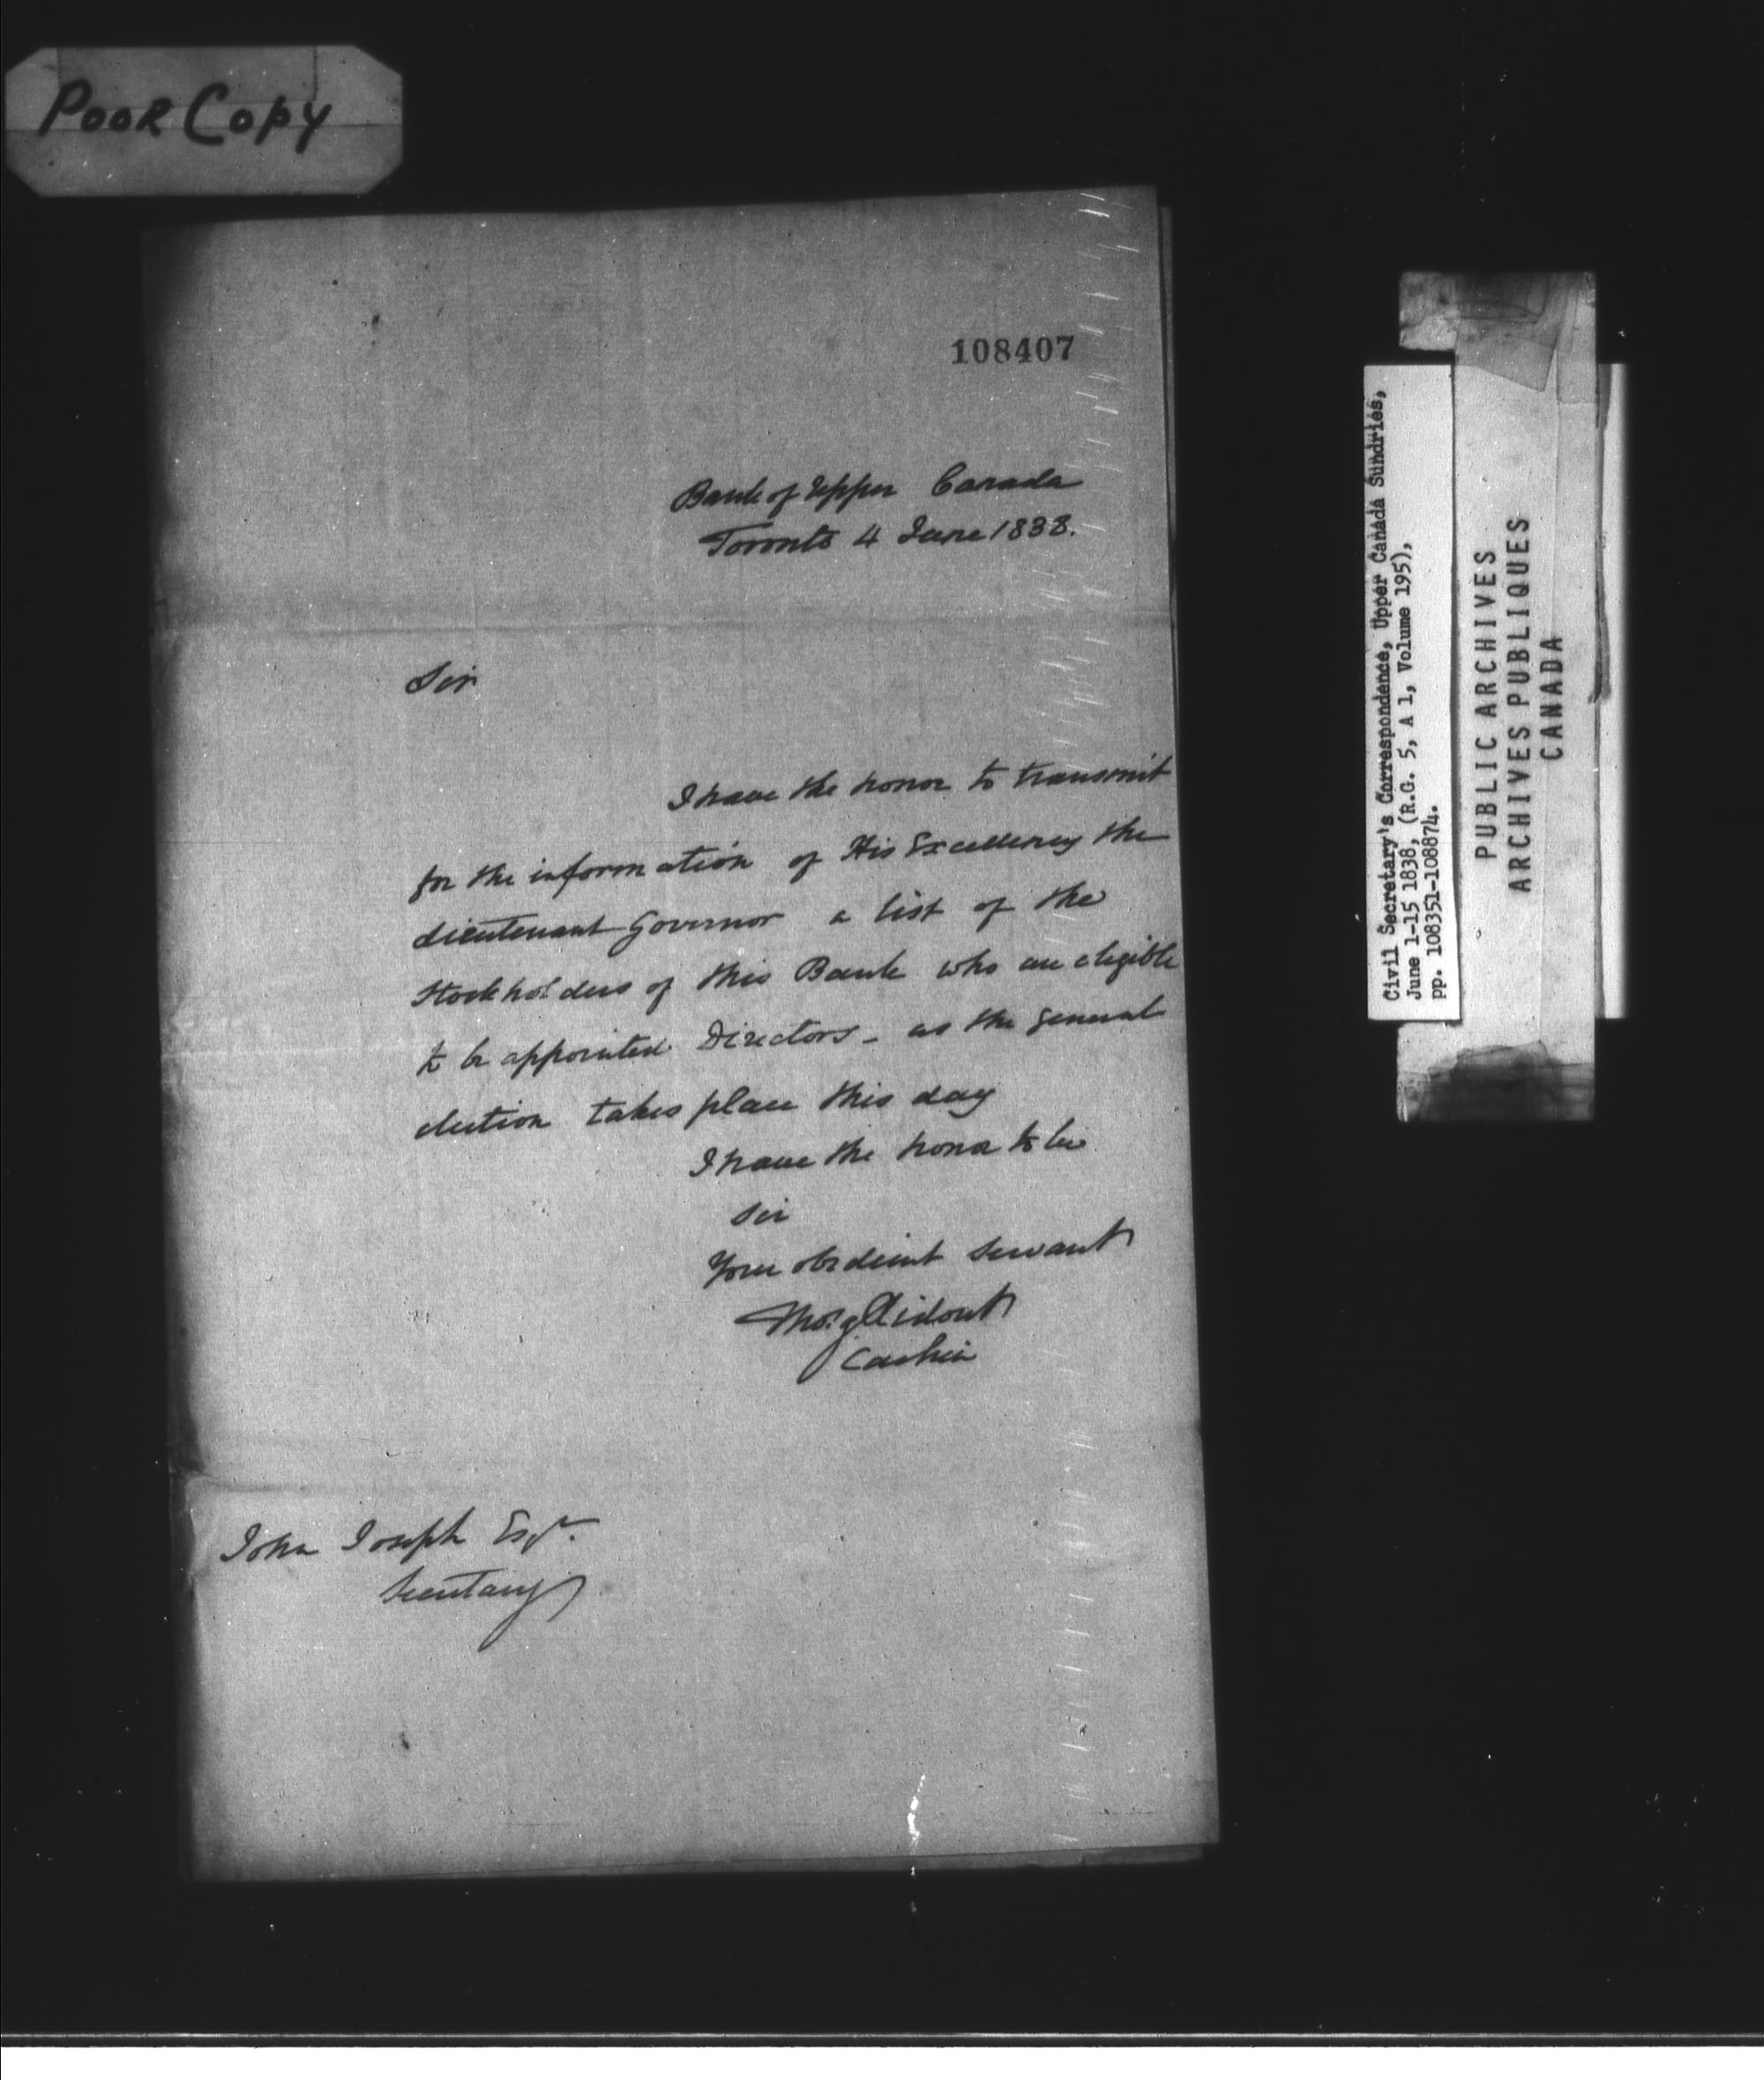 Poor Copy
108407
Bank of Upper Canada
Toronto 4 June 1838.
Sir
I have the honor to transmit
for the information of His Excellency the
Lieutenant Governor a list of the
Stockholders of this Bank who are eligible
to be appointed Directors - as the general
election takes place this day
I have the honor to be
Sir
Your obedient servant
Thos. G Ridout
Cashier
John Joseph Esqr.
Secretary
Civil Secretary's Correspondence, Upper Canada Sundries,
June 1-15 1838, (R.G. 5, A 1, Volume 195),
pp. 108351-108874.
PUBLIC ARCHIVES
ARCHIVES PUBLIQUES
CANADA